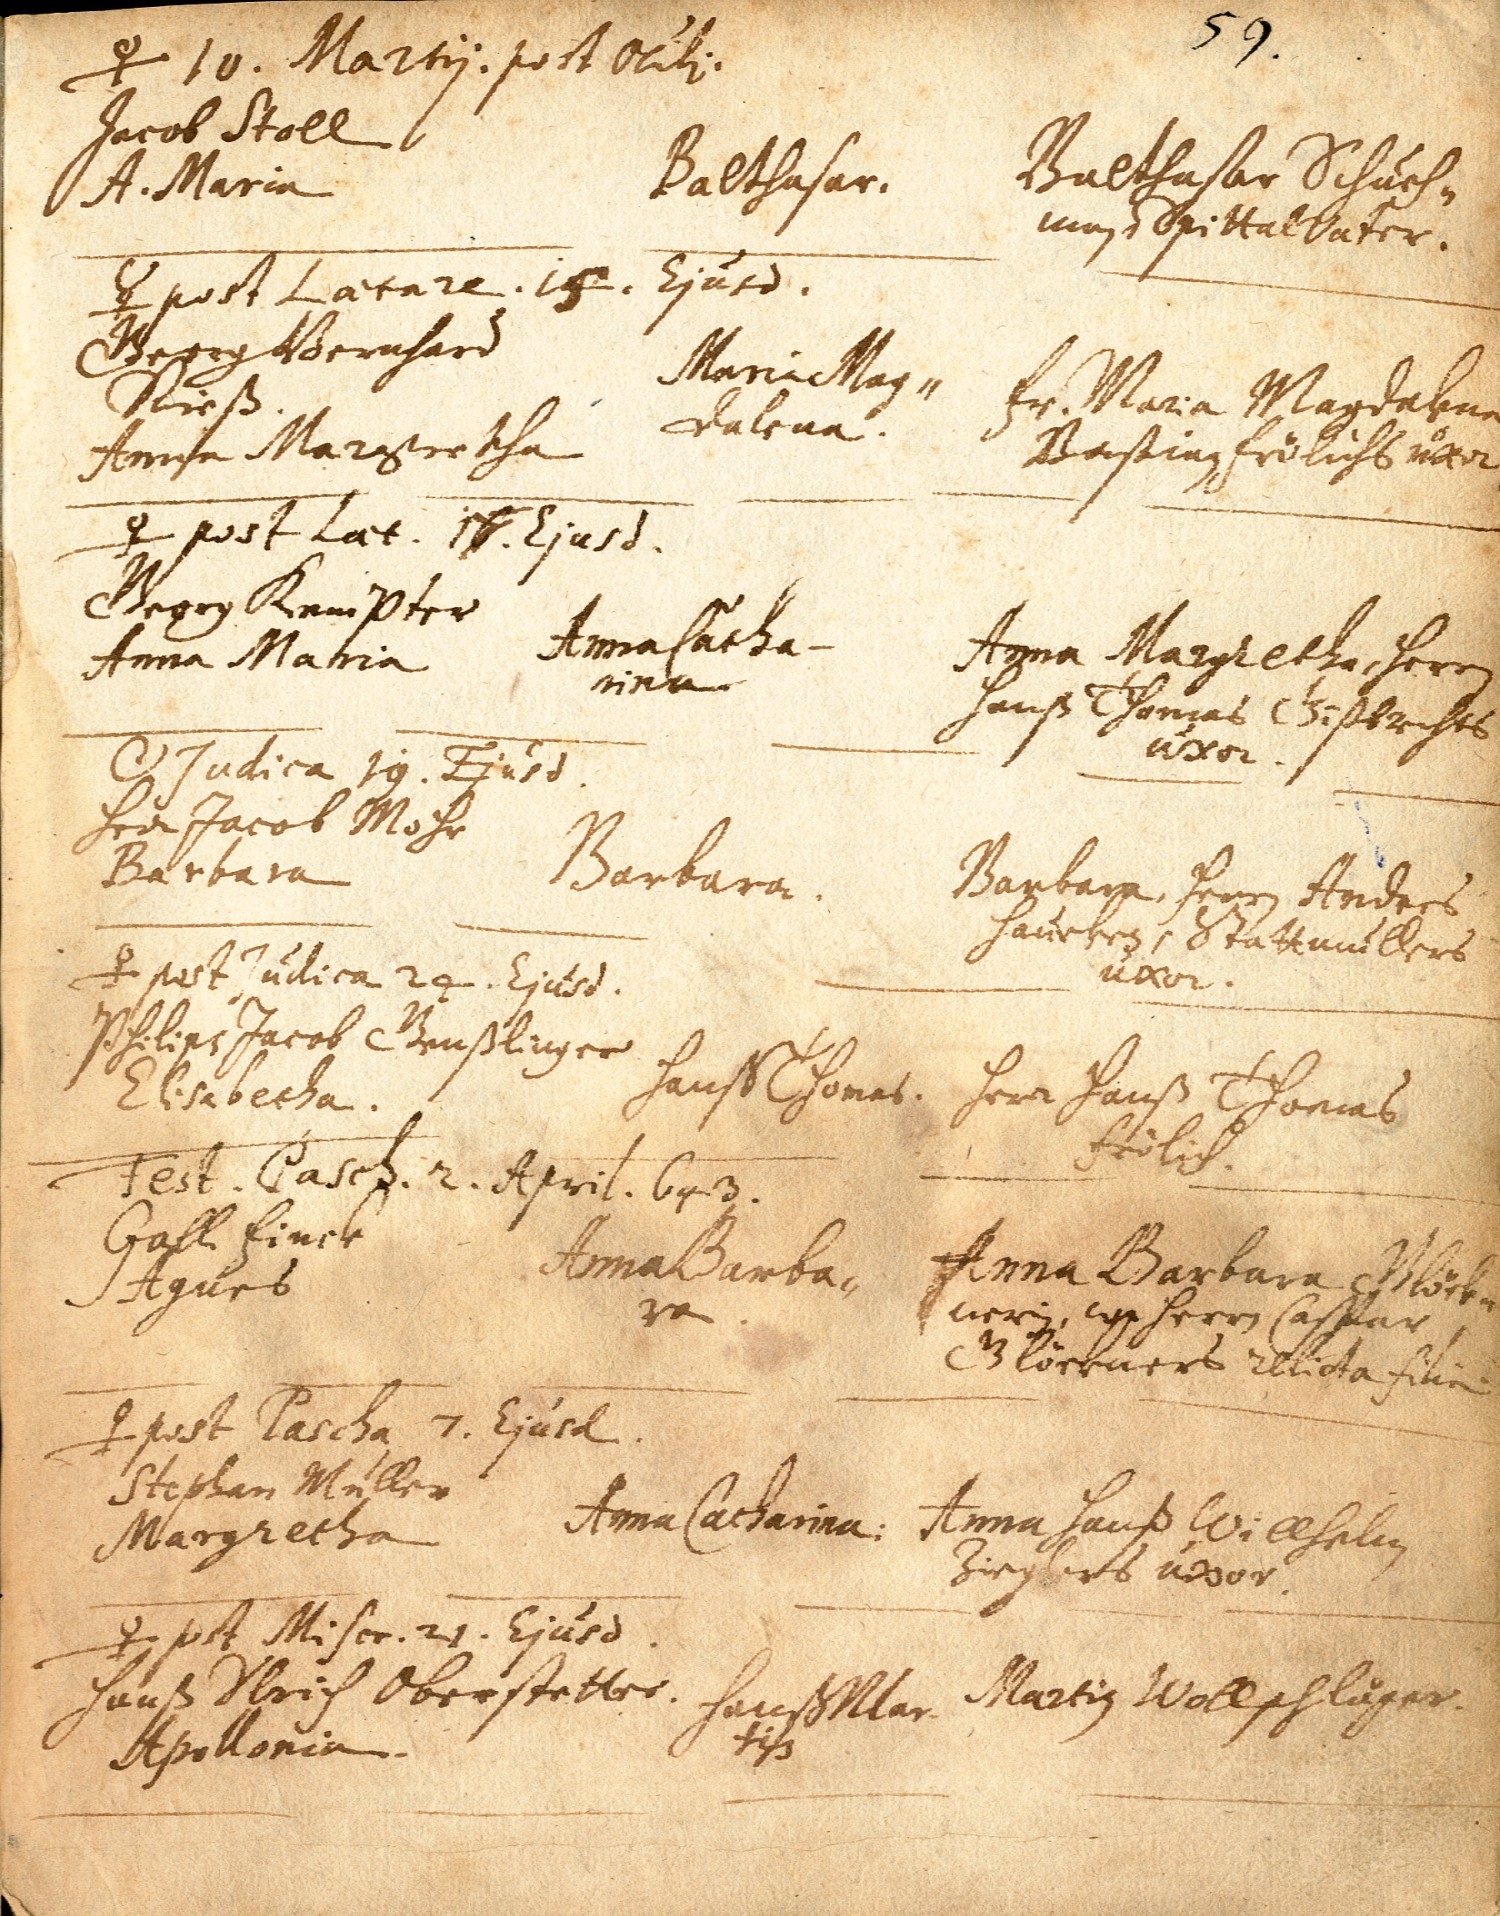 59.
♀ 10. Martij. post Oculj.
Jacob Stoll
A. Maria
Balthasar.
Balthasar Schuch-
Spittal Vater.
☿ post Laetare. 15. Ejusd.
Georg Bernhard
Rieß.
Anna Margretha
Maria Mag-
dalena.
Fr. Maria Magdalena
Bastian Frölichs uxor
♀ post Laet. 17. Ejusd.
Georg Kempter
Anna Maria
Anna Catha-
rina
Anna Margretha, Herrn
Hanß Thomas Gißbrechts
uxor.
☉ Judica 19. Ejusd.
Herr Jacob Mohr
Barbara
Barbara.
Barbara, Herrn Andres
Stattmüllers
uxor.
♀ post Judica 24. Ejusd.
Philips Jacob Genßlinger
Elisabetha.
Hanß Thomas.
Herr Hanß Thomas
Frölich.
Fest. Pasch. 2. April. 643.
Gall Finck
Agnes
Anna Barba-
ra.
Anna Barbara Glöck-
nerin, Herrn Caspar
Glöckners relicta filia
♀ post Pascha 7. Ejusd.
Stephan Müller
Margretha
Anna Catharina.
Anna Hanß Wilhelm
Zieglers uxor.
♀ post Miser. 21. Ejusd.
Hanß Ulrich Oberstetter.
Apollonia.
Hanß Mar-
tin
Martin Wollschläger.